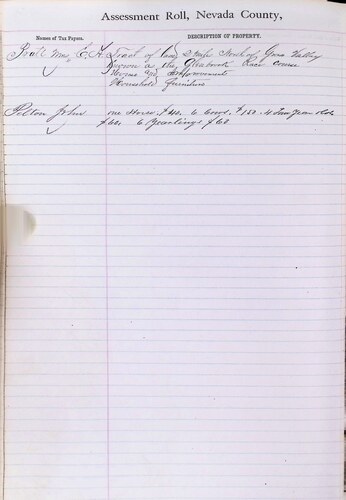 Assessment Roll, Nevada County,
Names of Tax Payers. DESCRIPTION OF PROPERTY.
Pratt Mrs E. A. Tract of land 2 miles South of Grass Valley
Known as the Race course
House and Improvements
Household Furniture
Pelton John one Horse $40. 6 Cows $150. 4 Two year olds
$60. 6 Yearlings $60